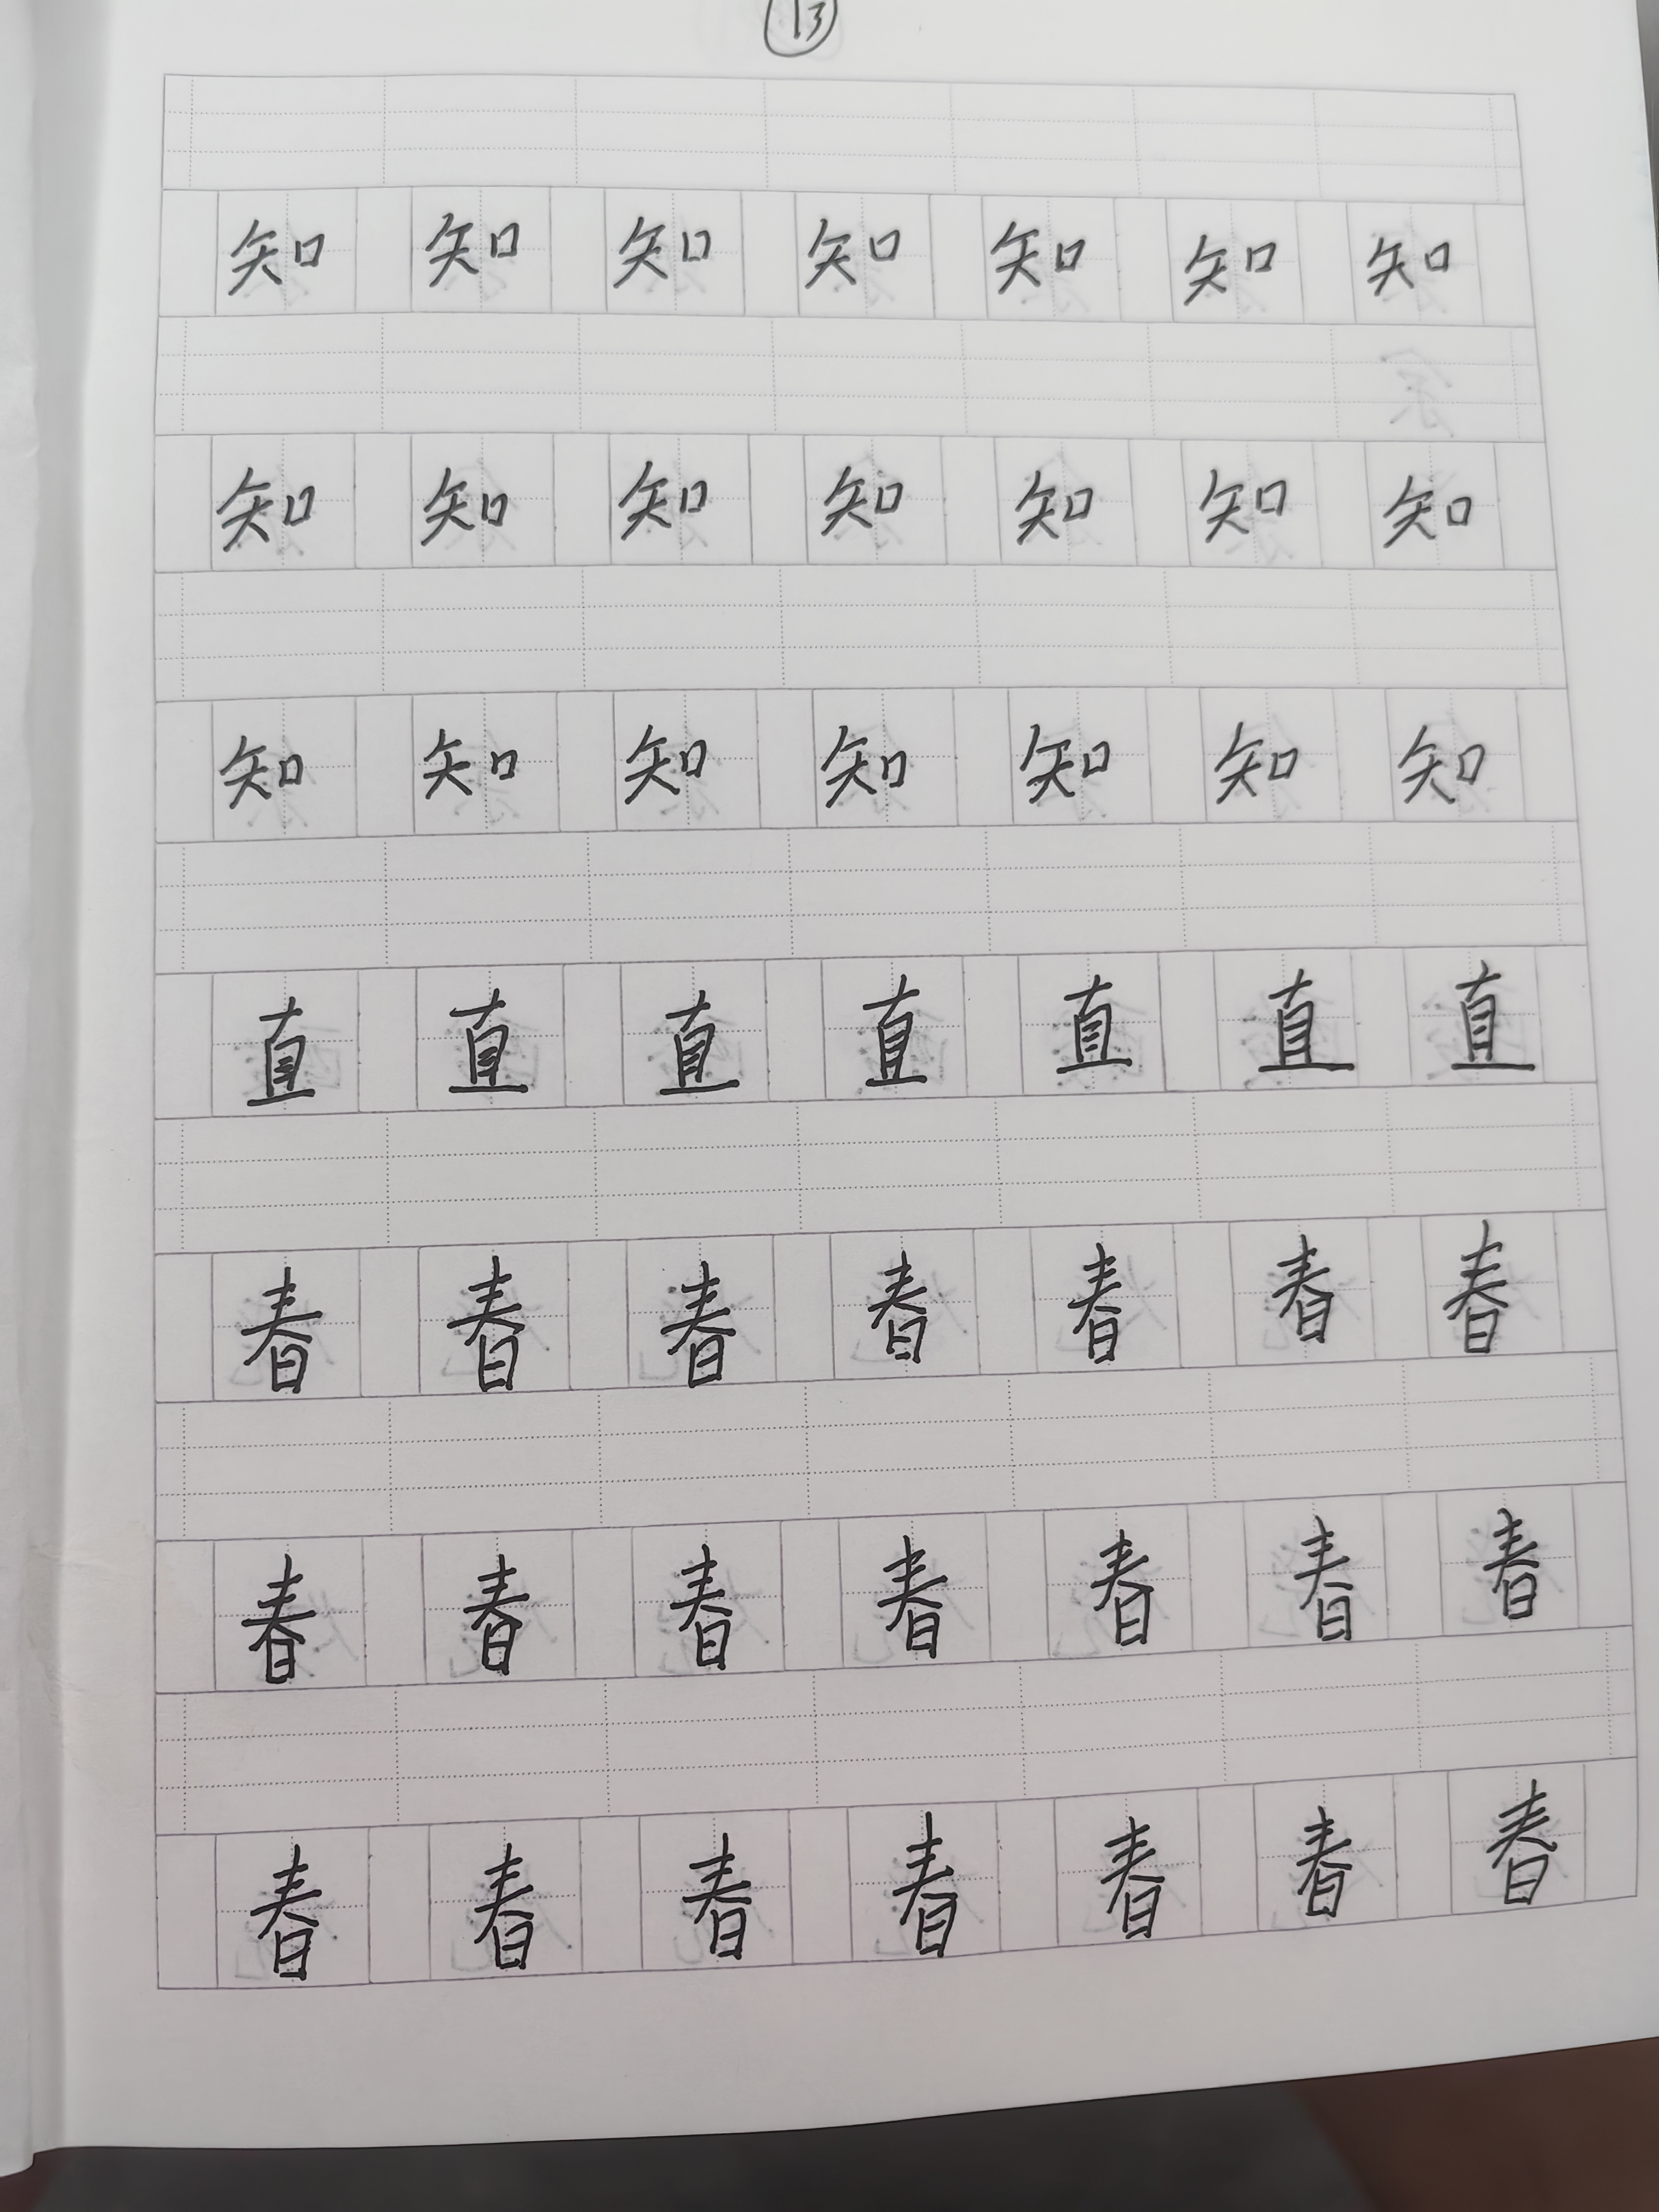 13
知知知知知知知
知知知知知知知
知知知知知知知
直直直直直直直
春春春春春春春
春春春春春春春
春春春春春春春